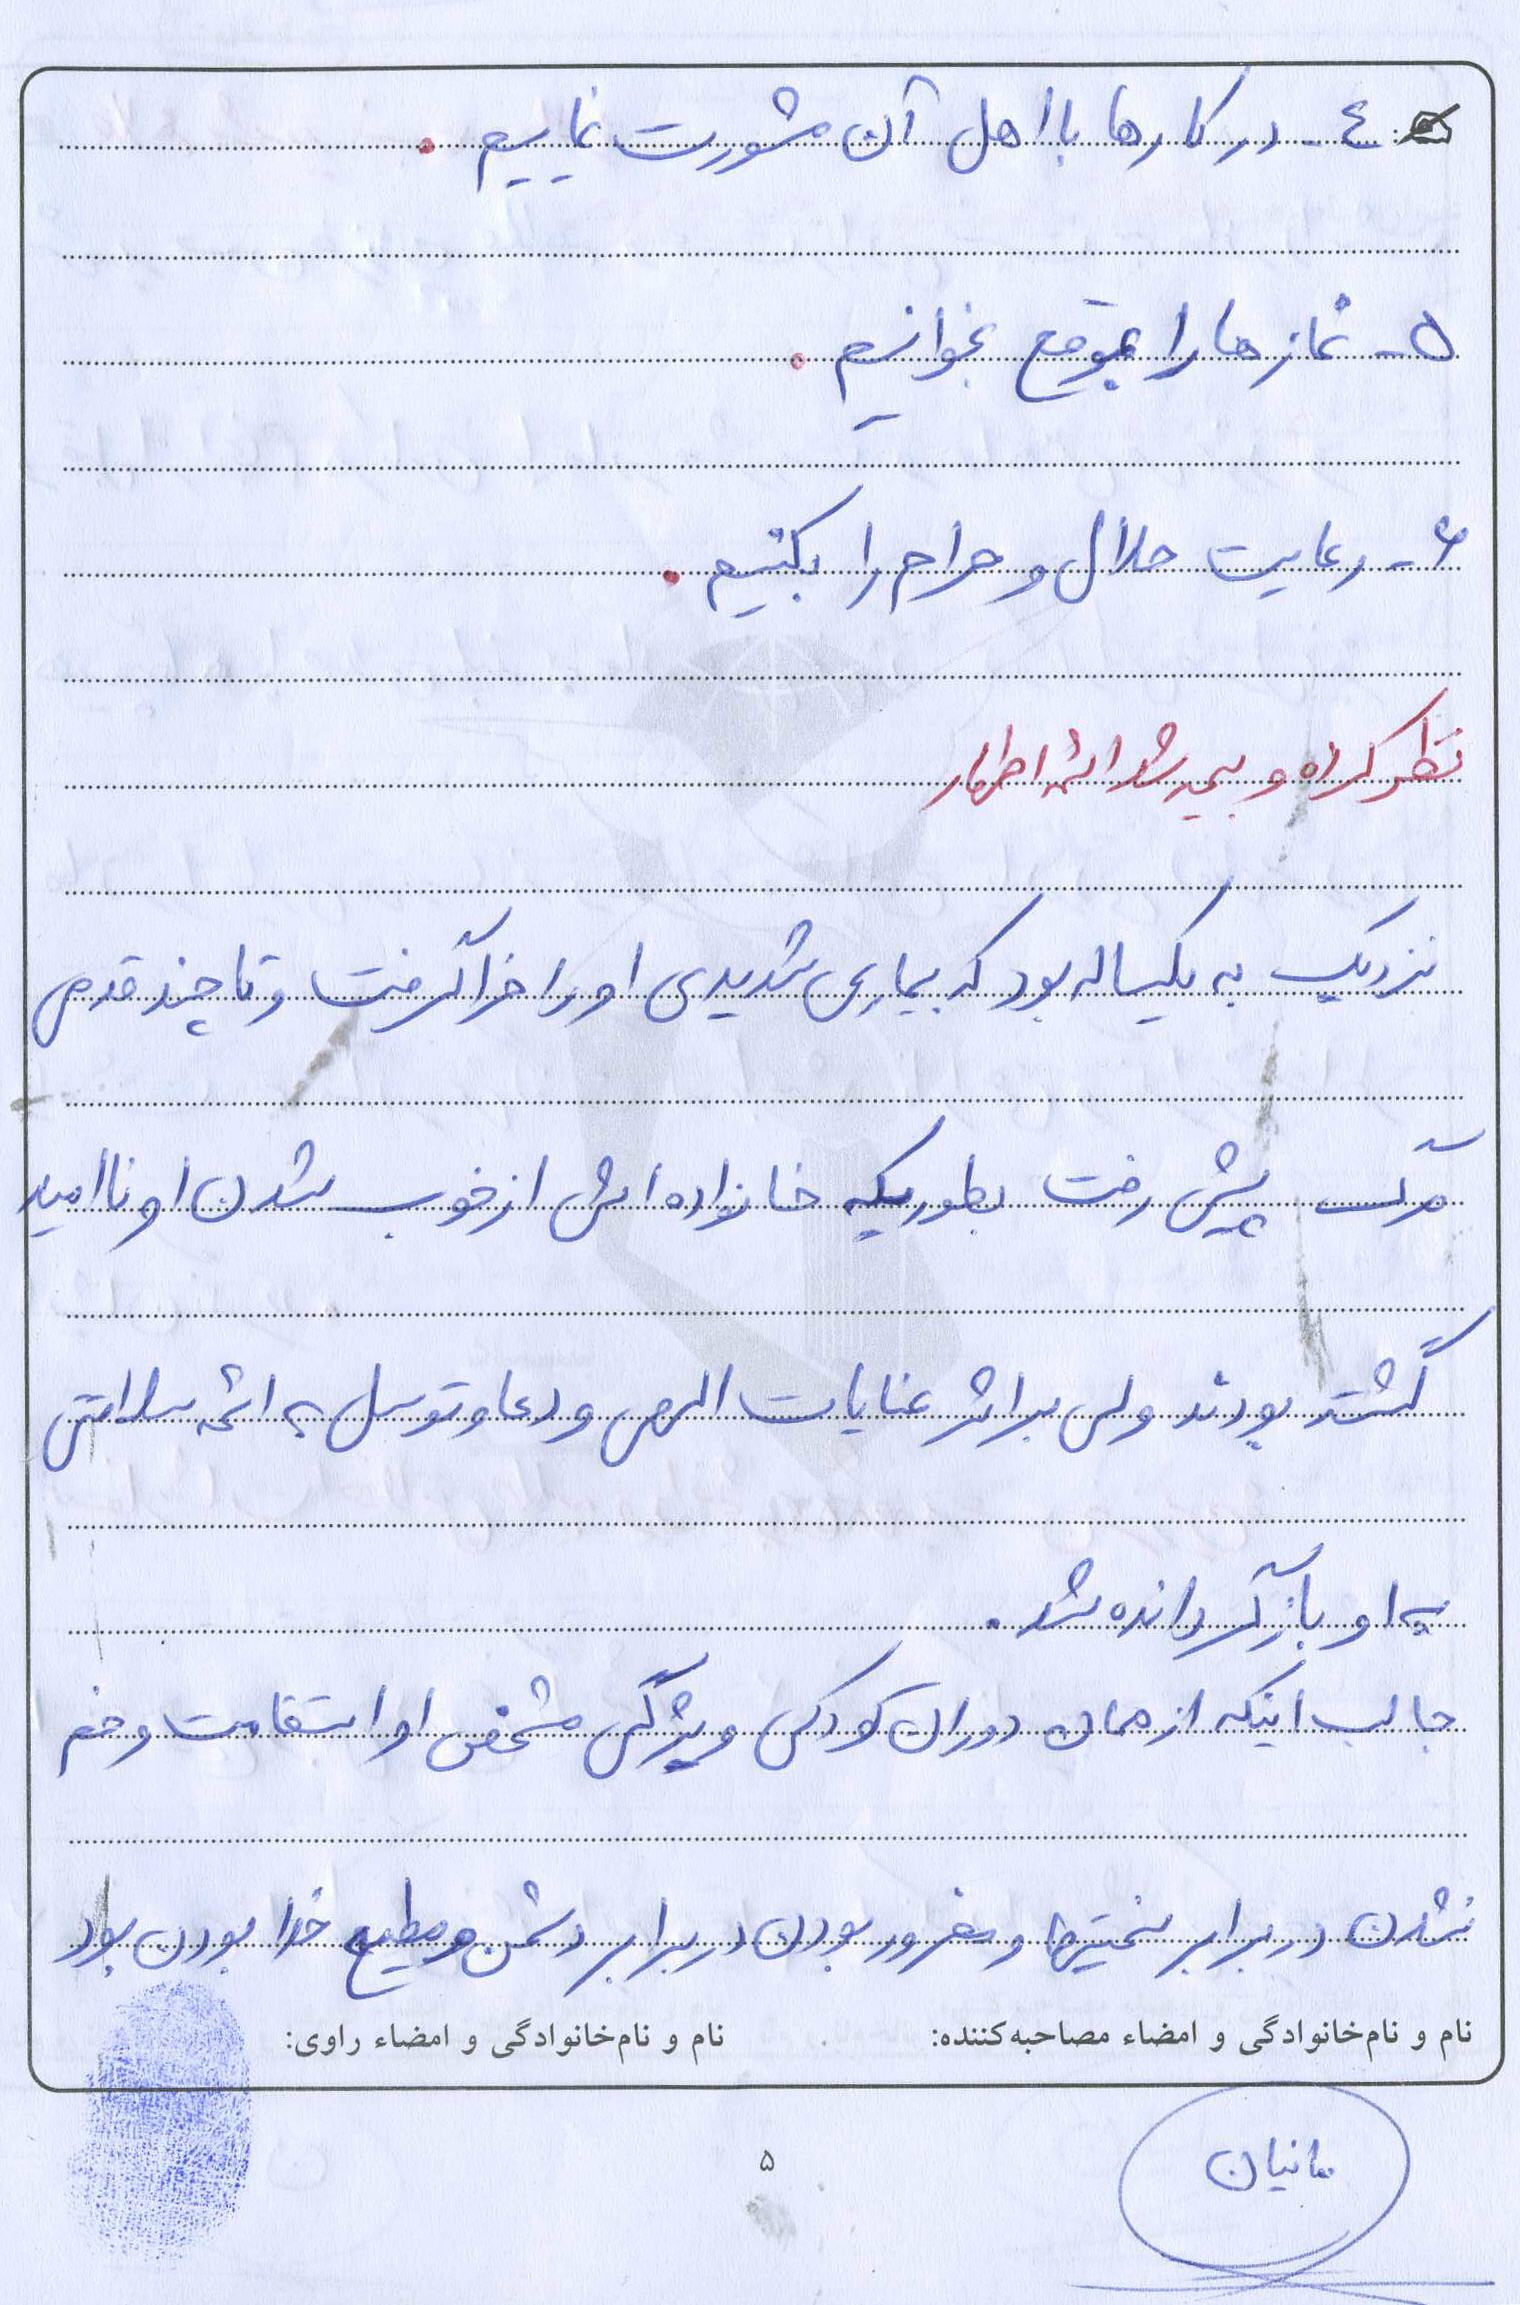 ٤- در کارها با اهل آن مشورت نماییم.
۵- نمازها را بموقع بخوانیم.
۶- رعایت حلال و حرام را بکنیم.
نظر کرده و بیمه شد ائمه اطهار
نزدیک به یکساله بود که بیماری شدیدی او را فرا گرفت و تا چند قدمی
مرگ پیش رفت بطوریکه خانواده اش از خوب شدن او ناامید
گشته بودند ولی بر اثر عنایات الهی و دعا و توسل به ائمه سلامتی
به او بازگردانده شد.
جالب اینکه از همان دوران کودکی ویژگی مشخص او استقامت و خم
نشدن در برابر سختیها و مغرور بودن در برابر دشمن و مطیع خدا بودن بود
نام و نام‌خانوادگی و امضاء مصاحبه‌کننده:
نام و نام‌خانوادگی و امضاء راوی:
مانیان
۵